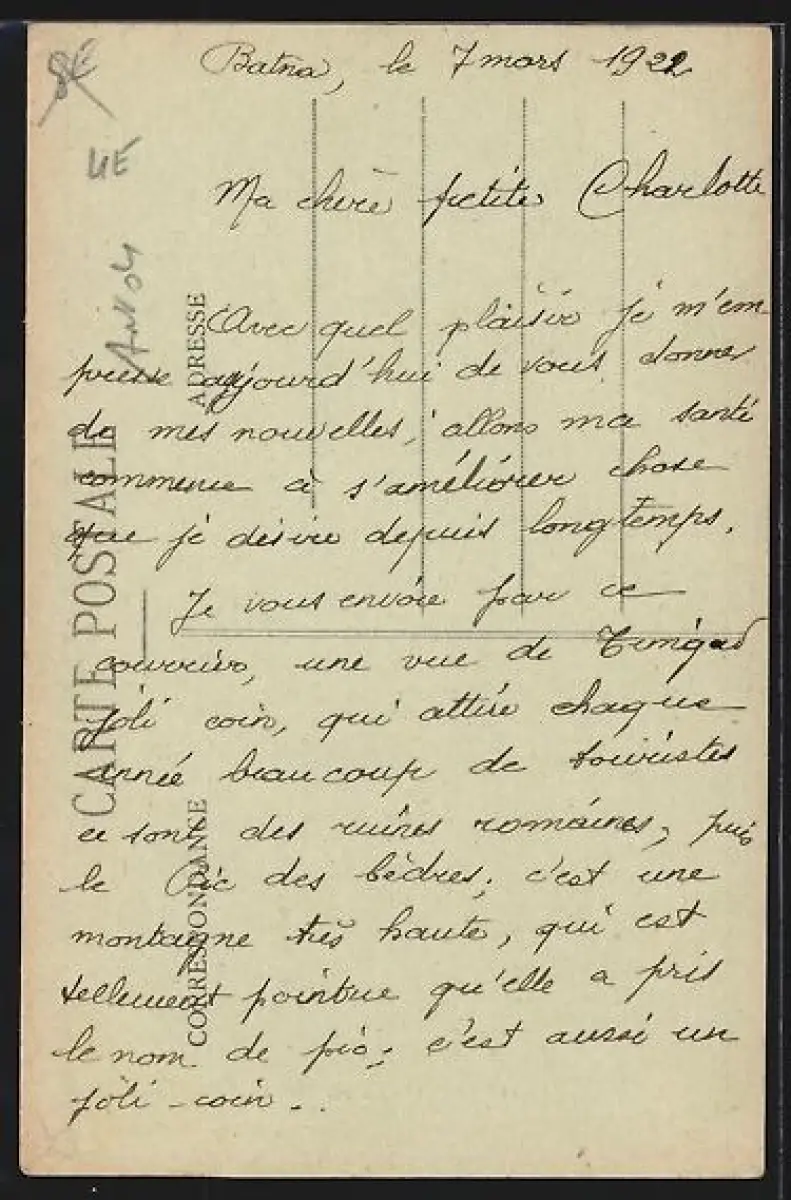 Batna, le 7 mars 1922
8€
4€
Ma chère petite Charlotte
Avec quel plaisir je m'em
presse aujourd'hui de vous donner
de mes nouvelles, allons ma santé
commence à s'améliorer chose
que je désire depuis longtemps.
Je vous envoie par ce
courrier, une vue de Timgad
joli coin, qui attire chaque
année beaucoup de touristes
ce sont des ruines romaines, puis
le Pic des Cèdres; c'est une
montagne très haute, qui est
tellement pointue qu'elle a pris
le nom de pic; c'est aussi un
joli - coin - .
CARTE POSTALE
ADRESSE
CORRESPONDANCE